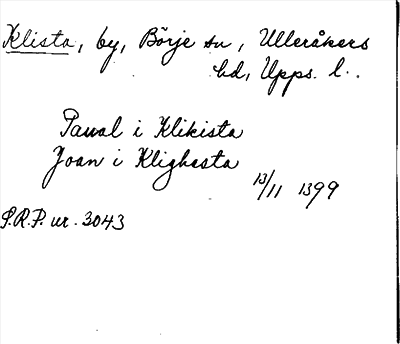 Klista, by, Börje sn, Ulleråkers
hd, Upps. l..
Paual i Klikista
Joan i Klighasta
13/11 1399
S.R.P. nr. 3043